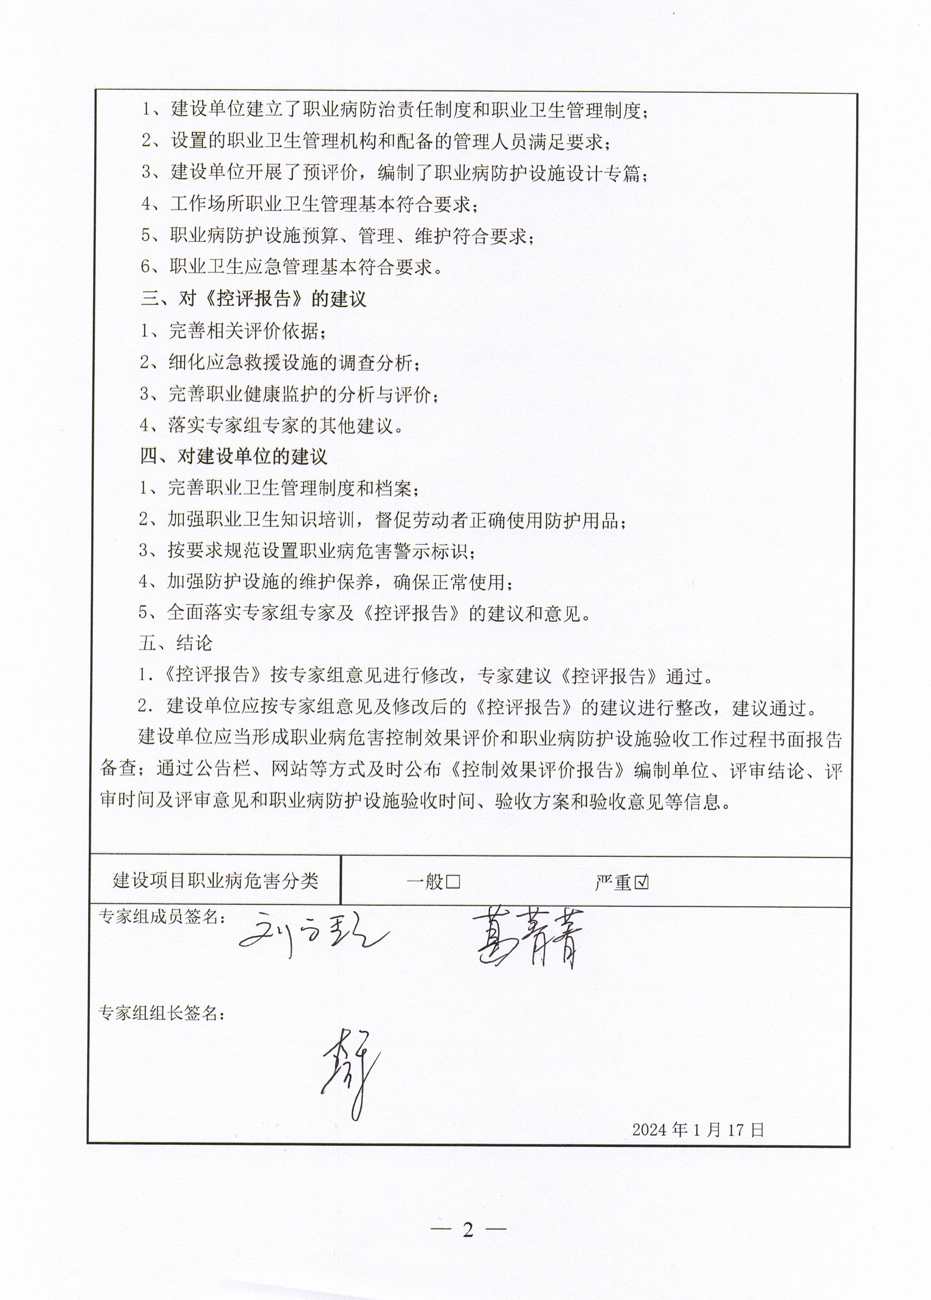 1、建设单位建立了职业病防治责任制度和职业卫生管理制度；
2、设置的职业卫生管理机构和配备的管理人员满足要求；
3、建设单位开展了预评价，编制了职业病防护设施设计专篇；
4、工作场所职业卫生管理基本符合要求；
5、职业病防护设施预算、管理、维护符合要求；
6、职业卫生应急管理基本符合要求。
三、对《控评报告》的建议
1、完善相关评价依据；
2、细化应急救援设施的调查分析；
3、完善职业健康监护的分析与评价；
4、落实专家组专家的其他建议。
四、对建设单位的建议
1、完善职业卫生管理制度和档案；
2、加强职业卫生知识培训，督促劳动者正确使用防护用品；
3、按要求规范设置职业病危害警示标识；
4、加强防护设施的维护保养，确保正常使用；
5、全面落实专家组专家及《控评报告》的建议和意见。
五、结论
1.《控评报告》按专家组意见进行修改，专家建议《控评报告》通过。
2. 建设单位应按专家组意见及修改后的《控评报告》的建议进行整改，建议通过。
建设单位应当形成职业病危害控制效果评价和职业病防护设施验收工作过程书面报告
备查；通过公告栏、网站等方式及时公布《控制效果评价报告》编制单位、评审结论、评
审时间及评审意见和职业病防护设施验收时间、验收方案和验收意见等信息。
建设项目职业病危害分类 一般□ 严重☑
专家组成员签名： 葛菁菁
专家组组长签名：
2024 年 1 月 17 日
— 2 —